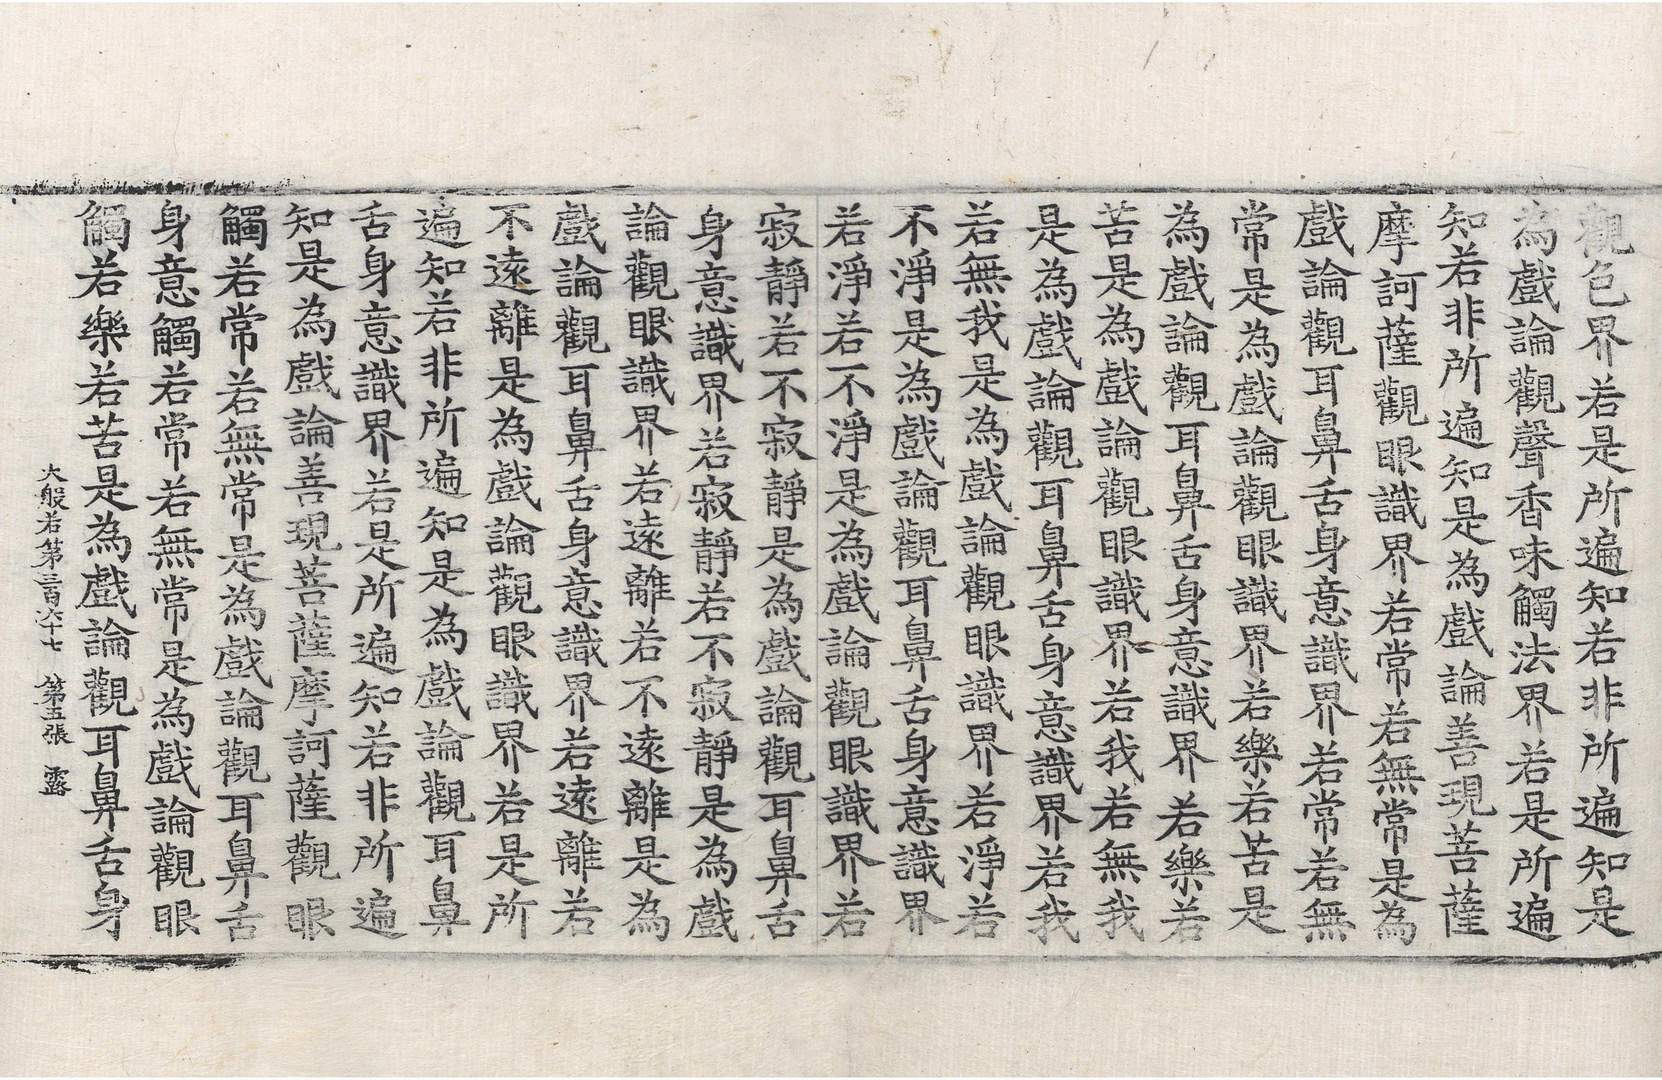 觀色界若是所遍知若非所遍知是
為戲論觀聲香味觸法界若是所遍
知若非所遍知是為戲論善現菩薩
摩訶薩觀眼識界若常若無常是為
戲論觀耳鼻舌身意識界若常若無
常是為戲論觀眼識界若樂若苦是
為戲論觀耳鼻舌身意識界若樂若
苦是為戲論觀眼識界若我若無我
是為戲論觀耳鼻舌身意識界若我
若無我是為戲論觀眼識界若淨若
不淨是為戲論觀耳鼻舌身意識界
若淨若不淨是為戲論觀眼識界若
寂靜若不寂靜是為戲論觀耳鼻舌
身意識界若寂靜若不寂靜是為戲
論觀眼識界若遠離若不遠離是為
戲論觀耳鼻舌身意識界若遠離若
不遠離是為戲論觀眼識界若是所
遍知若非所遍知是為戲論觀耳鼻
舌身意識界若是所遍知若非所遍
知是為戲論善現菩薩摩訶薩觀眼
觸若常若無常是為戲論觀耳鼻舌
身意觸若常若無常是為戲論觀眼
觸若樂若苦是為戲論觀耳鼻舌身
大般若第三百六十七 第五張 露